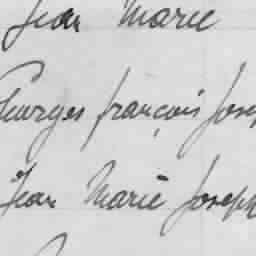 Jean Marie
Georges françois Josep
Jean Marie Joseph